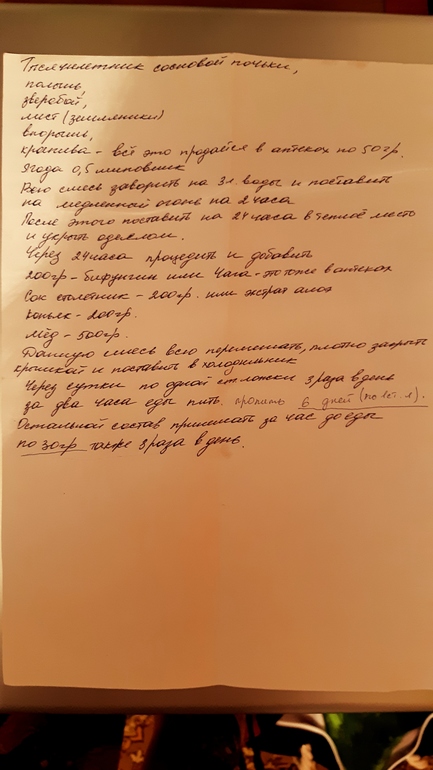 Тысячелетник сосновой почьки,
полынь,
зверобой,
лист (земленики)
впорыш,
крапива - всё это продаётся в аптеках по 50гр.
Ягода 0,5 шиповник
Всю смесь заворить на 3л. воды и поставить
на медленной огонь на 2 часа
После этого поставить на 24 часа в тёплое место
и укрыть одеялом.
Через 24 часа процедить и добавить
200гр - бифунгин или Чага - это тоже в аптеках
Сок столетник - 200гр. или экстрат алоэ
Коньяк - 200гр.
Мёд - 500гр.
Данную смесь всю перемешать, плотно закрыть
крышкой и поставить в холодильник
Через сутки по одной ст ложки 3 раза в день
за два часа еды пить. пропить 6 дней (по 1 ст. л).
Остальной состав принимать за час до еды
по 30гр также 3 раза в день.